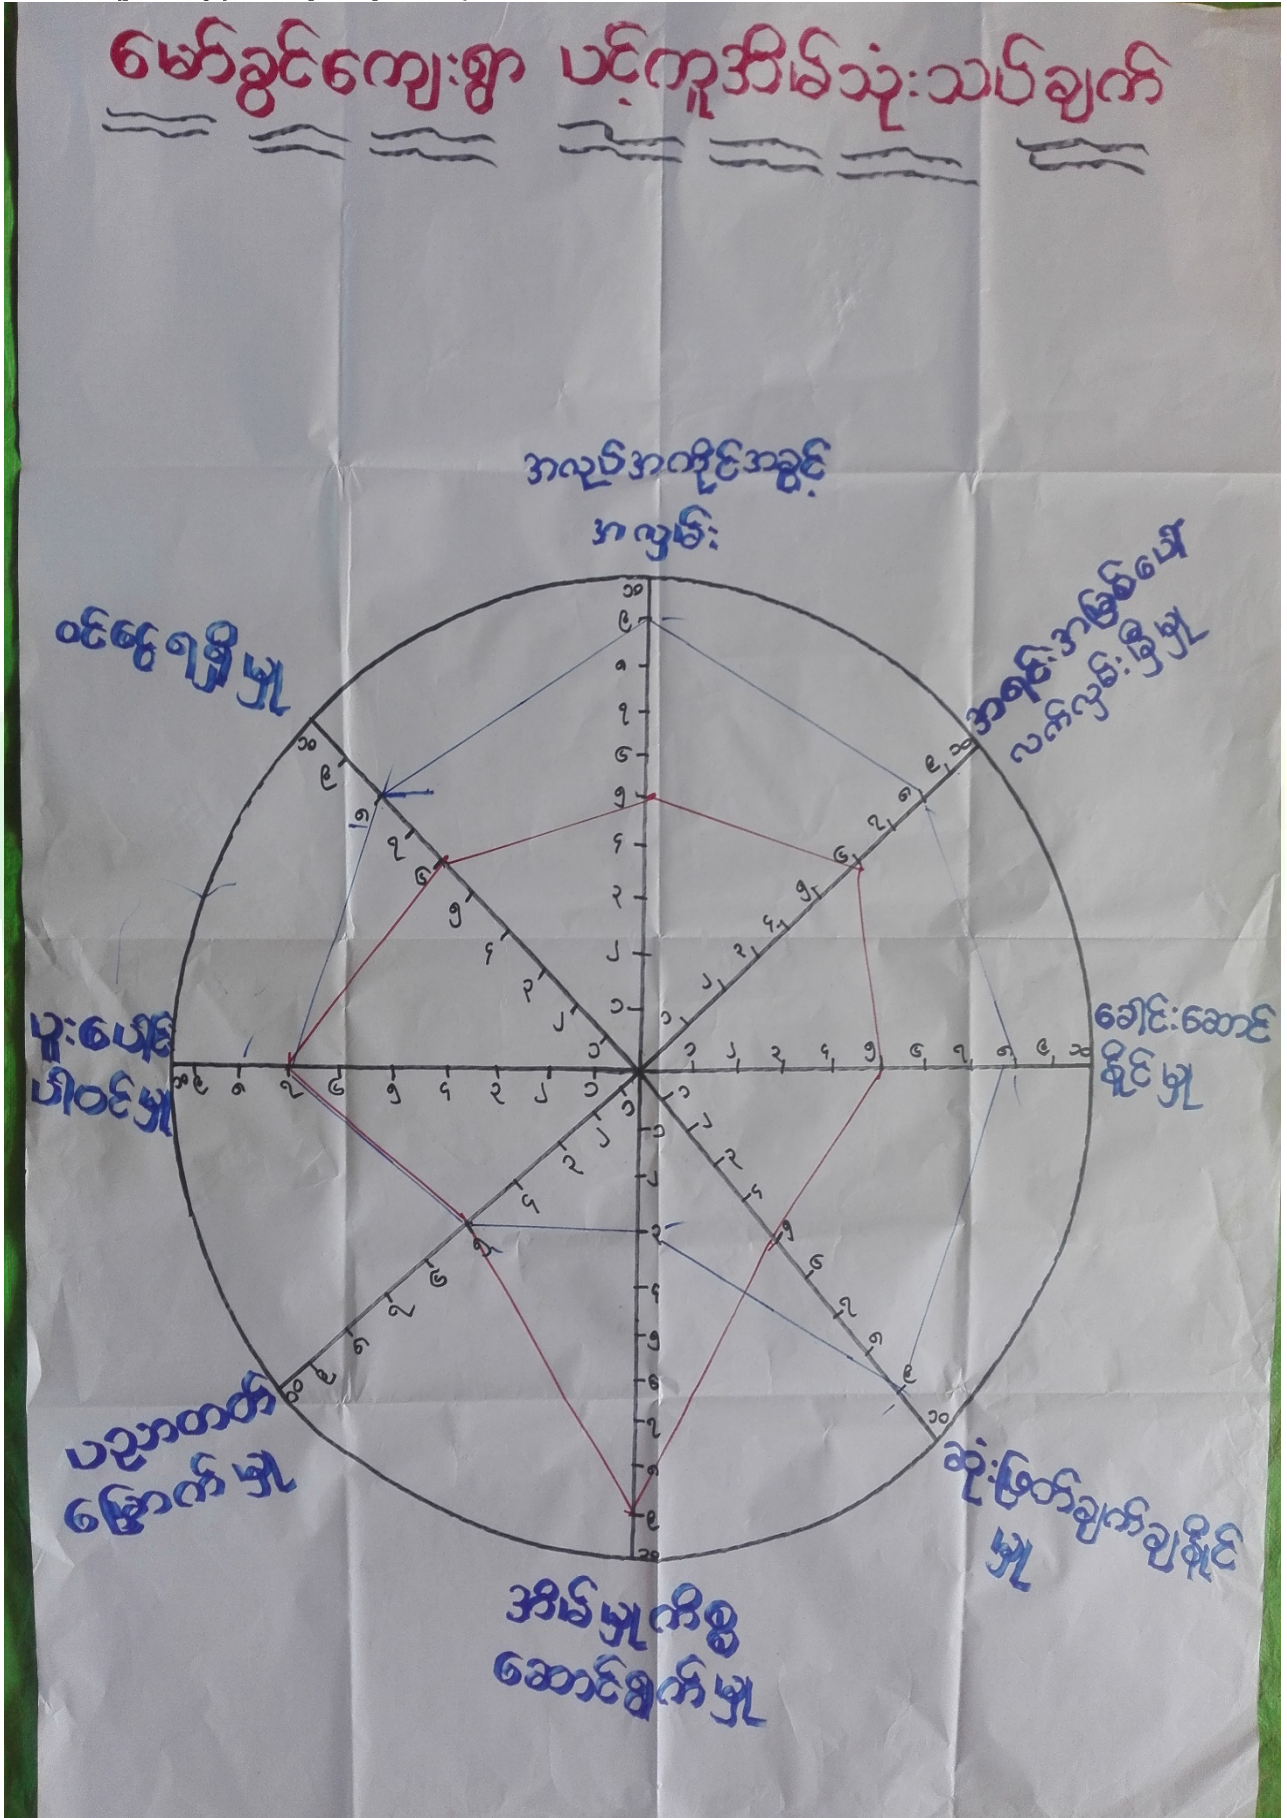 မော်ခွင်ကျေးရွာ ပင့်ကူအိမ်သုံးသပ်ချက်
အလုပ်အကိုင်အခွင့်
အလှမ်း
အရင်းအမြစ်ပေါ်
လက်လှမ်းမှီမှု
ခေါင်းဆောင်
နိုင်မှု
ဆုံးဖြတ်ချက်ချနိုင်
မှု
အိမ်မှုကိစ္စ
ဆောင်ရွက်မှု
ပညာတတ်
မြောက်မှု
ပူးပေါင်း
ပါဝင်မှု
ဝင်ငွေရရှိမှု
၁ ၂ ၃ ၄ ၅ ၆ ၇ ၈ ၉ ၁၀
၁ ၂ ၃ ၄ ၅ ၆ ၇ ၈ ၉ ၁၀
၁ ၂ ၃ ၄ ၅ ၆ ၇ ၈ ၉ ၁၀
၁ ၂ ၃ ၄ ၅ ၆ ၇ ၈ ၉ ၁၀
၁ ၂ ၃ ၄ ၅ ၆ ၇ ၈ ၉ ၁၀
၁ ၂ ၃ ၄ ၅ ၆ ၇ ၈ ၉ ၁၀
၁ ၂ ၃ ၄ ၅ ၆ ၇ ၈ ၉ ၁၀
၁ ၂ ၃ ၄ ၅ ၆ ၇ ၈ ၉ ၁၀